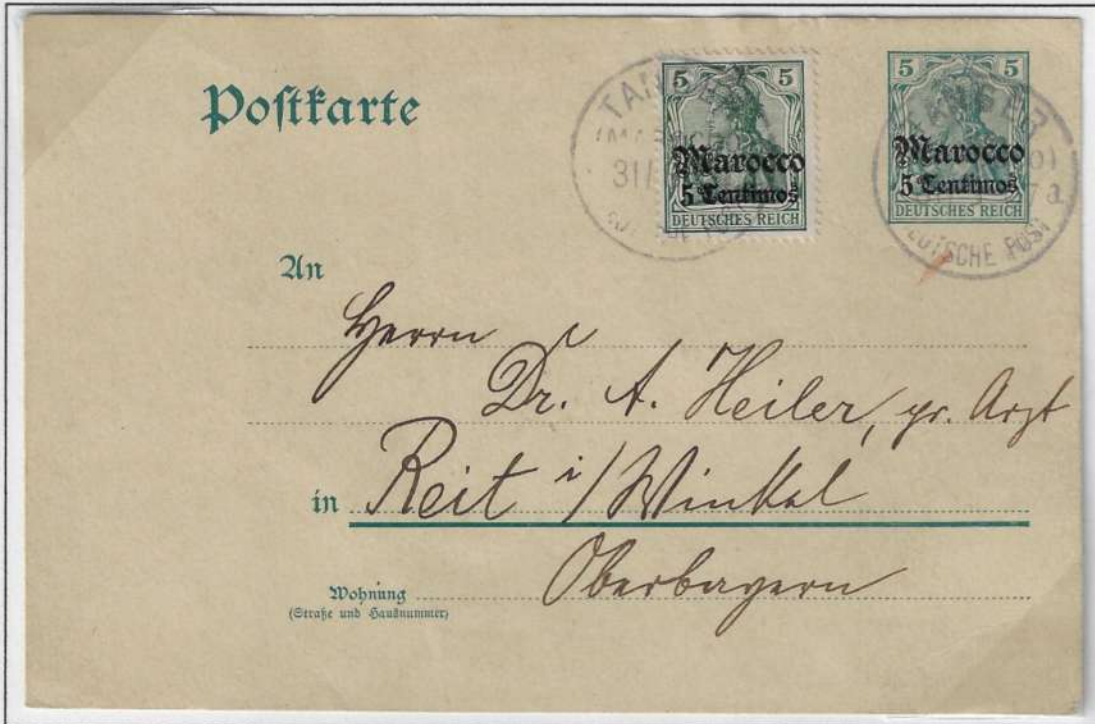 Postkarte
5 5
Marocco
5 Centimos
DEUTSCHES REICH
5 5
Marocco
5 Centimos
DEUTSCHES REICH
TANGER
31/
TANGER
DEUTSCHE POST
a
An
Herrn
Dr. A. Heiler, pr. Arzt
in Reit i/Winkel
Oberbayern
Wohnung
(Straße und Hausnummer)